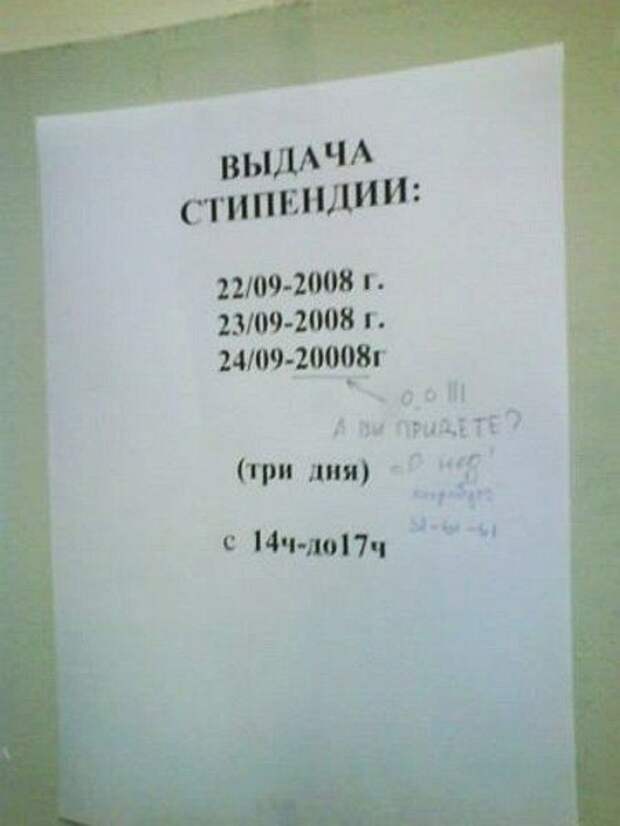 ВЫДАЧА
СТИПЕНДИИ:
22/09-2008 г.
23/09-2008 г.
24/09-20008г
О,О !!!
А ВЫ ПРИДЕТЕ?
(три дня)
с 14ч-до17ч
ы-ы-ы